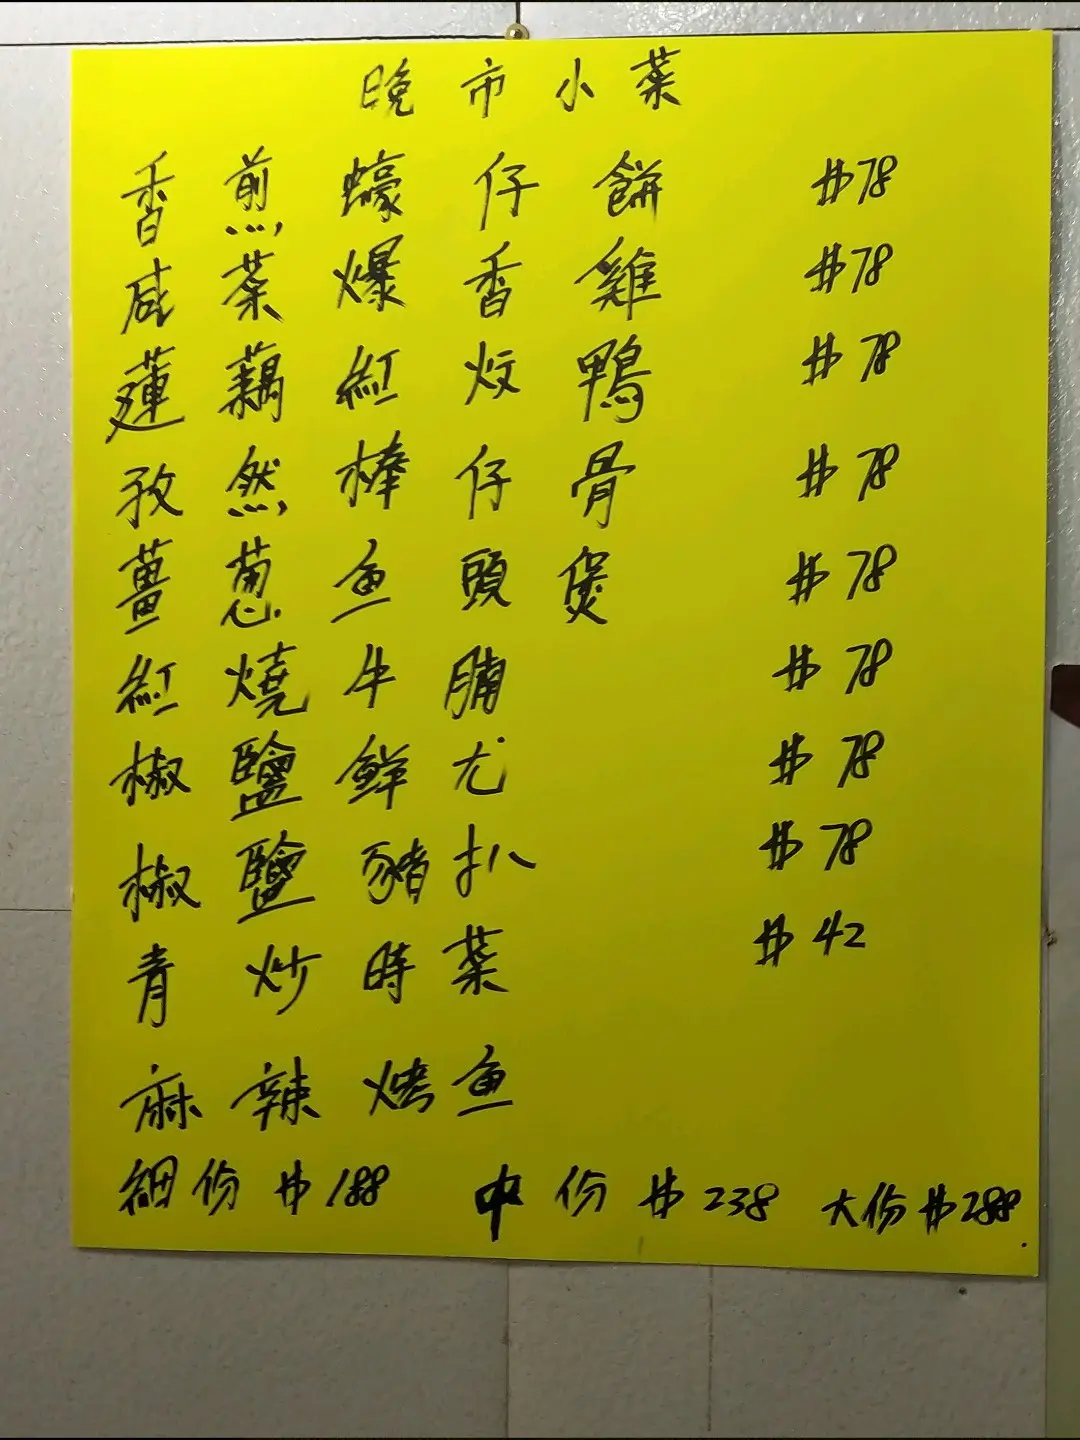 晚市小菜
香煎蠔仔餅 $78
咸菜爆香雞 $78
蓮藕紅炆鴨 $78
孜然棒仔骨 $78
薑蔥魚頭煲 $78
紅燒牛腩 $78
椒鹽鮮尤 $78
椒鹽豬扒 $78
青炒時菜 $42
麻辣烤魚
細份 $188 中份 $238 大份 $288